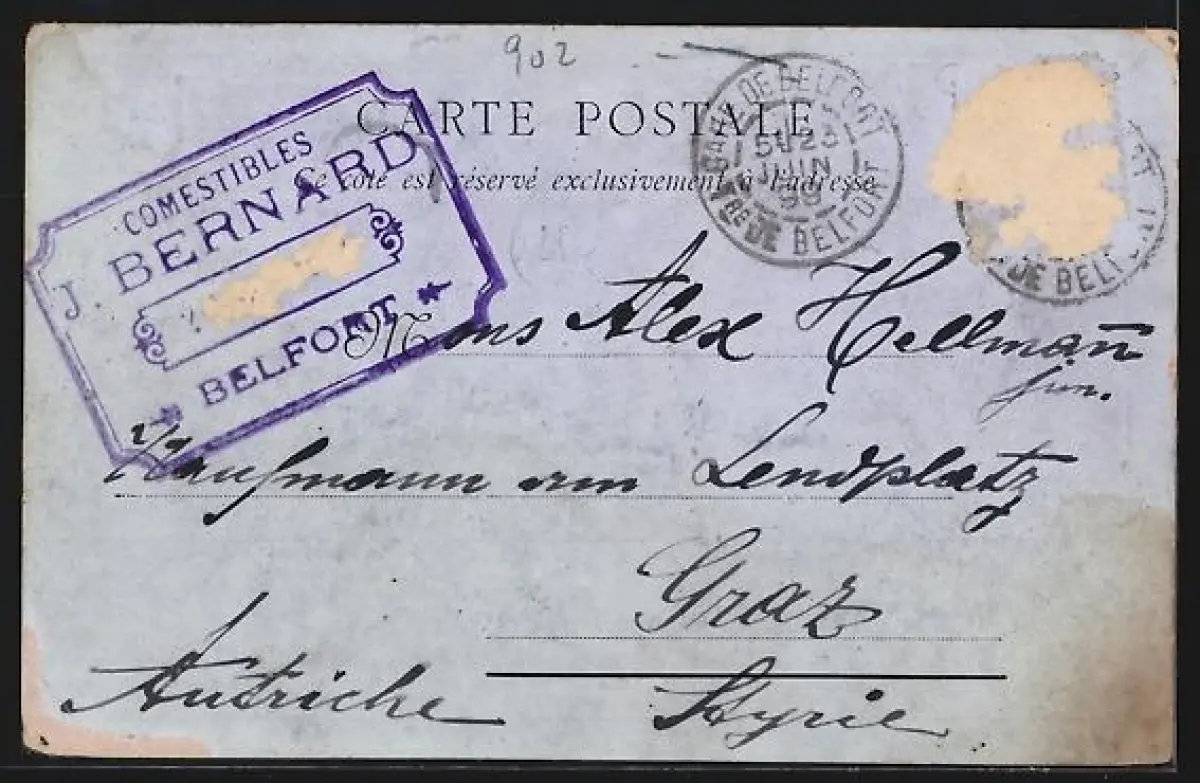 902
CARTE POSTALE
Ce côté est réservé exclusivement à l'adresse
COMESTIBLES
J. BERNARD
BELFORT
GARE DE BELFORT
5E 23
JUIN
99
DE BELFORT
DE BELFORT
Mons Alex Hellman̄
jun.
Kaufmann am Lendplatz
Graz
Autriche Styrie